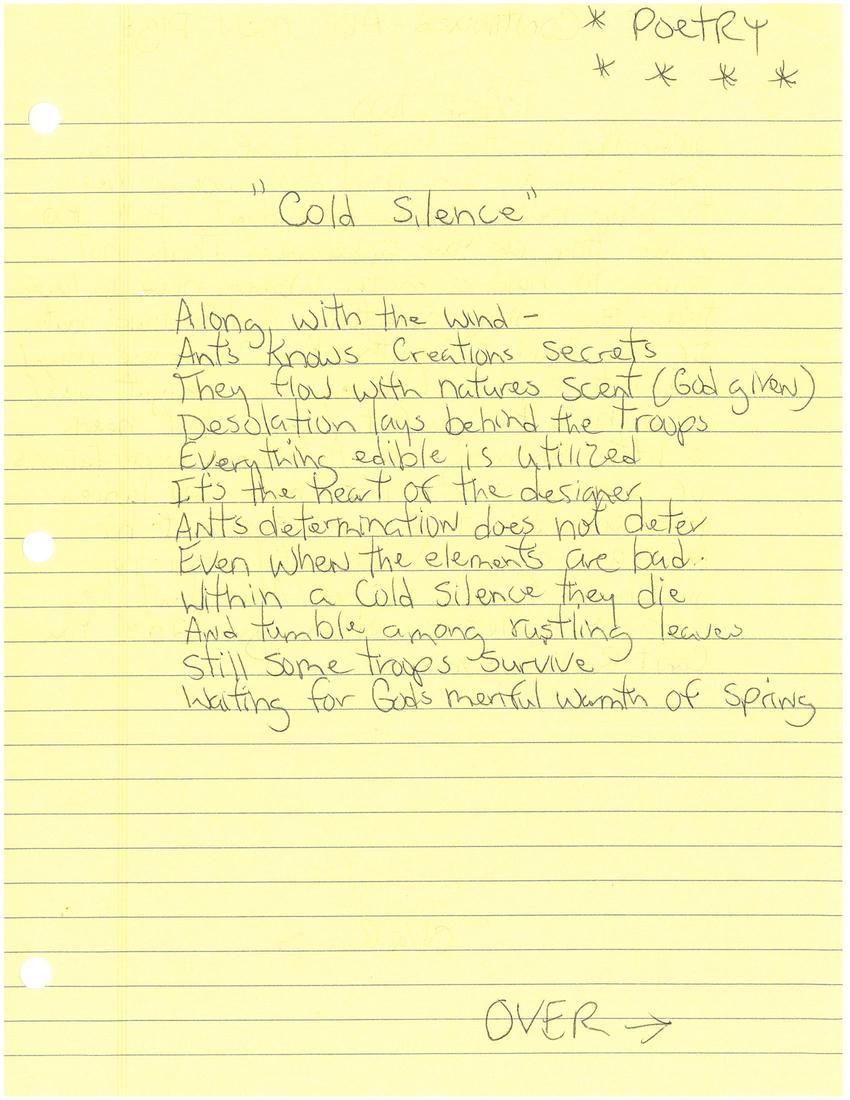 * Poetry
* * * *
"Cold Silence"
Along, with the wind -
Ants Knows Creations secrets
They flow with natures scent (God given)
Desolation lays behind the Troops
Everything edible is utilized
It's the heart of the designer
Ants determination does not deter
Even when the elements are bad..
Within a Cold Silence they die
And tumble among rustling leaves
Still some troops survive
Waiting for God's merciful warmth of Spring
OVER →